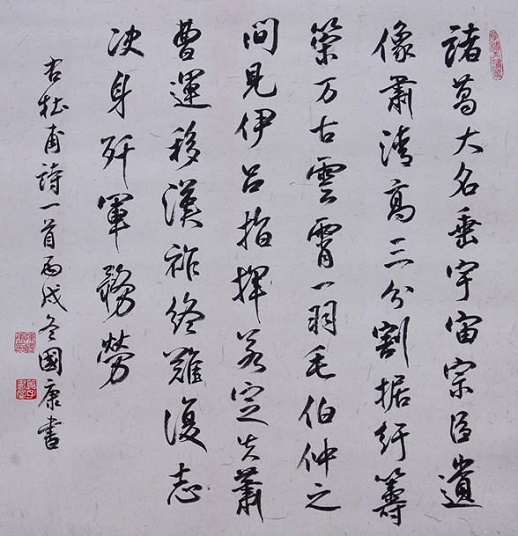 諸葛大名垂宇宙宗臣遺
像肅清高三分割據紆籌
策万古雲霄一羽毛伯仲之
間見伊呂指揮若定失蕭
曹運移漢祚終難復志
决身歼軍務勞
右杜甫詩一首丙戌冬國康書